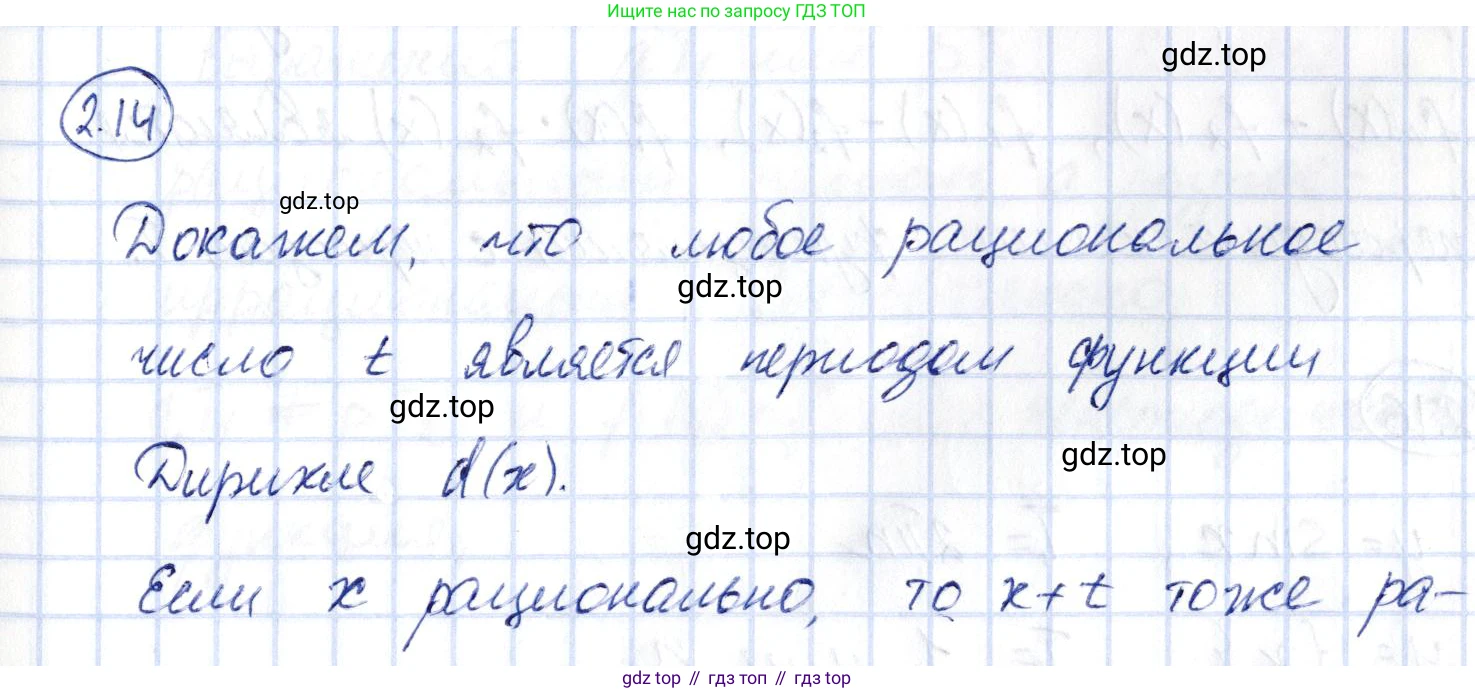 Ищите нас по запросу ГДЗ ТОП
gdz.top
2.14
gdz.top
Докажем, что любое рациональное
gdz.top
число t является периодом функции
gdz.top
gdz.top
Дирихле d(x).
gdz.top
Если x рационально, то x+t тоже ра-
gdz top // гдз топ // гдз top